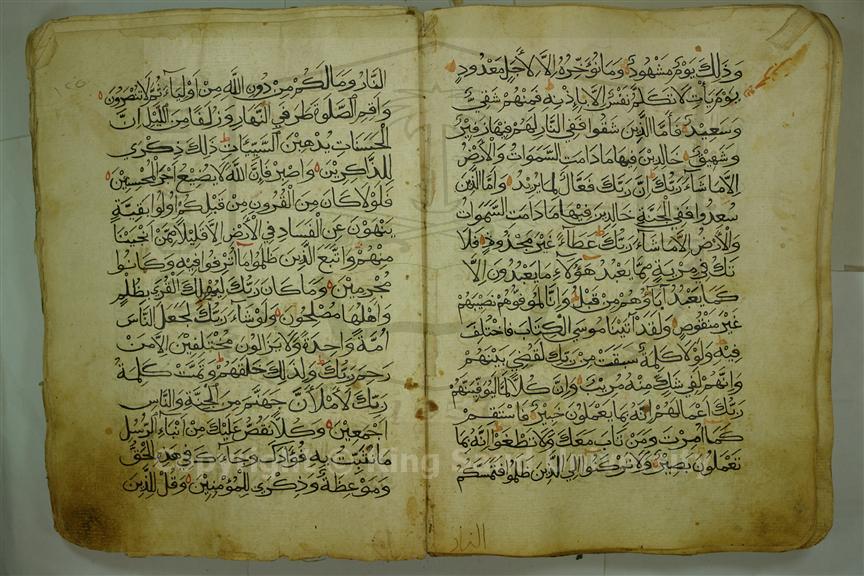 وَذَلِكَ يَوْمٌ مَشْهُودٌ وَمَا نُؤَخِّرُهُ إِلَّا لِأَجَلٍ مَعْدُودٍ
يَوْمَ يَأْتِ لَا تَكَلَّمُ نَفْسٌ إِلَّا بِإِذْنِهِ فَمِنْهُمْ شَقِيٌّ
وَسَعِيدٌ فَأَمَّا الَّذِينَ شَقُوا فَفِي النَّارِ لَهُمْ فِيهَا زَفِيرٌ
وَشَهِيقٌ خَالِدِينَ فِيهَا مَا دَامَتِ السَّمَوَاتُ وَالْأَرْضُ
إِلَّا مَا شَاءَ رَبُّكَ إِنَّ رَبَّكَ فَعَّالٌ لِمَا يُرِيدُ وَأَمَّا الَّذِينَ
سُعِدُوا فَفِي الْجَنَّةِ خَالِدِينَ فِيهَا مَا دَامَتِ السَّمَوَاتُ
وَالْأَرْضُ إِلَّا مَا شَاءَ رَبُّكَ عَطَاءً غَيْرَ مَجْذُوذٍ فَلَا
تَكُ فِي مِرْيَةٍ مِمَّا يَعْبُدُ هَؤُلَاءِ مَا يَعْبُدُونَ إِلَّا
كَمَا يَعْبُدُ آبَاؤُهُمْ مِنْ قَبْلُ وَإِنَّا لَمُوَفُّوهُمْ نَصِيبَهُمْ
غَيْرَ مَنْقُوصٍ وَلَقَدْ آتَيْنَا مُوسَى الْكِتَابَ فَاخْتُلِفَ
فِيهِ وَلَوْلَا كَلِمَةٌ سَبَقَتْ مِنْ رَبِّكَ لَقُضِيَ بَيْنَهُمْ
وَإِنَّهُمْ لَفِي شَكٍّ مِنْهُ مُرِيبٍ وَإِنَّ كُلًّا لَمَّا لَيُوَفِّيَنَّهُمْ
رَبُّكَ أَعْمَالَهُمْ إِنَّهُ بِمَا يَعْمَلُونَ خَبِيرٌ فَاسْتَقِمْ
كَمَا أُمِرْتَ وَمَنْ تَابَ مَعَكَ وَلَا تَطْغَوْا إِنَّهُ بِمَا
تَعْمَلُونَ بَصِيرٌ وَلَا تَرْكَنُوا إِلَى الَّذِينَ ظَلَمُوا فَتَمَسَّكُمُ
النار
النَّارُ وَمَا لَكُمْ مِنْ دُونِ اللَّهِ مِنْ أَوْلِيَاءَ ثُمَّ لَا تُنْصَرُونَ
وَأَقِمِ الصَّلَوةَ طَرَفَيِ النَّهَارِ وَزُلَفًا مِنَ اللَّيْلِ إِنَّ
الْحَسَنَاتِ يُذْهِبْنَ السَّيِّئَاتِ ذَلِكَ ذِكْرَى
لِلذَّاكِرِينَ وَاصْبِرْ فَإِنَّ اللَّهَ لَا يُضِيعُ أَجْرَ الْمُحْسِنِينَ
فَلَوْلَا كَانَ مِنَ الْقُرُونِ مِنْ قَبْلِكُمْ أُولُوا بَقِيَّةٍ
يَنْهَوْنَ عَنِ الْفَسَادِ فِي الْأَرْضِ إِلَّا قَلِيلًا مِمَّنْ أَنْجَيْنَا
مِنْهُمْ وَاتَّبَعَ الَّذِينَ ظَلَمُوا مَا أُتْرِفُوا فِيهِ وَكَانُوا
مُجْرِمِينَ وَمَا كَانَ رَبُّكَ لِيُهْلِكَ الْقُرَى بِظُلْمٍ
وَأَهْلُهَا مُصْلِحُونَ وَلَوْ شَاءَ رَبُّكَ لَجَعَلَ النَّاسَ
أُمَّةً وَاحِدَةً وَلَا يَزَالُونَ مُخْتَلِفِينَ إِلَّا مَنْ
رَحِمَ رَبُّكَ وَلِذَلِكَ خَلَقَهُمْ وَتَمَّتْ كَلِمَةُ
رَبِّكَ لَأَمْلَأَنَّ جَهَنَّمَ مِنَ الْجِنَّةِ وَالنَّاسِ
أَجْمَعِينَ وَكُلًّا نَقُصُّ عَلَيْكَ مِنْ أَنْبَاءِ الرُّسُلِ
مَا نُثَبِّتُ بِهِ فُؤَادَكَ وَجَاءَكَ فِي هَذِهِ الْحَقُّ
وَمَوْعِظَةٌ وَذِكْرَى لِلْمُؤْمِنِينَ وَقُلْ لِلَّذِينَ